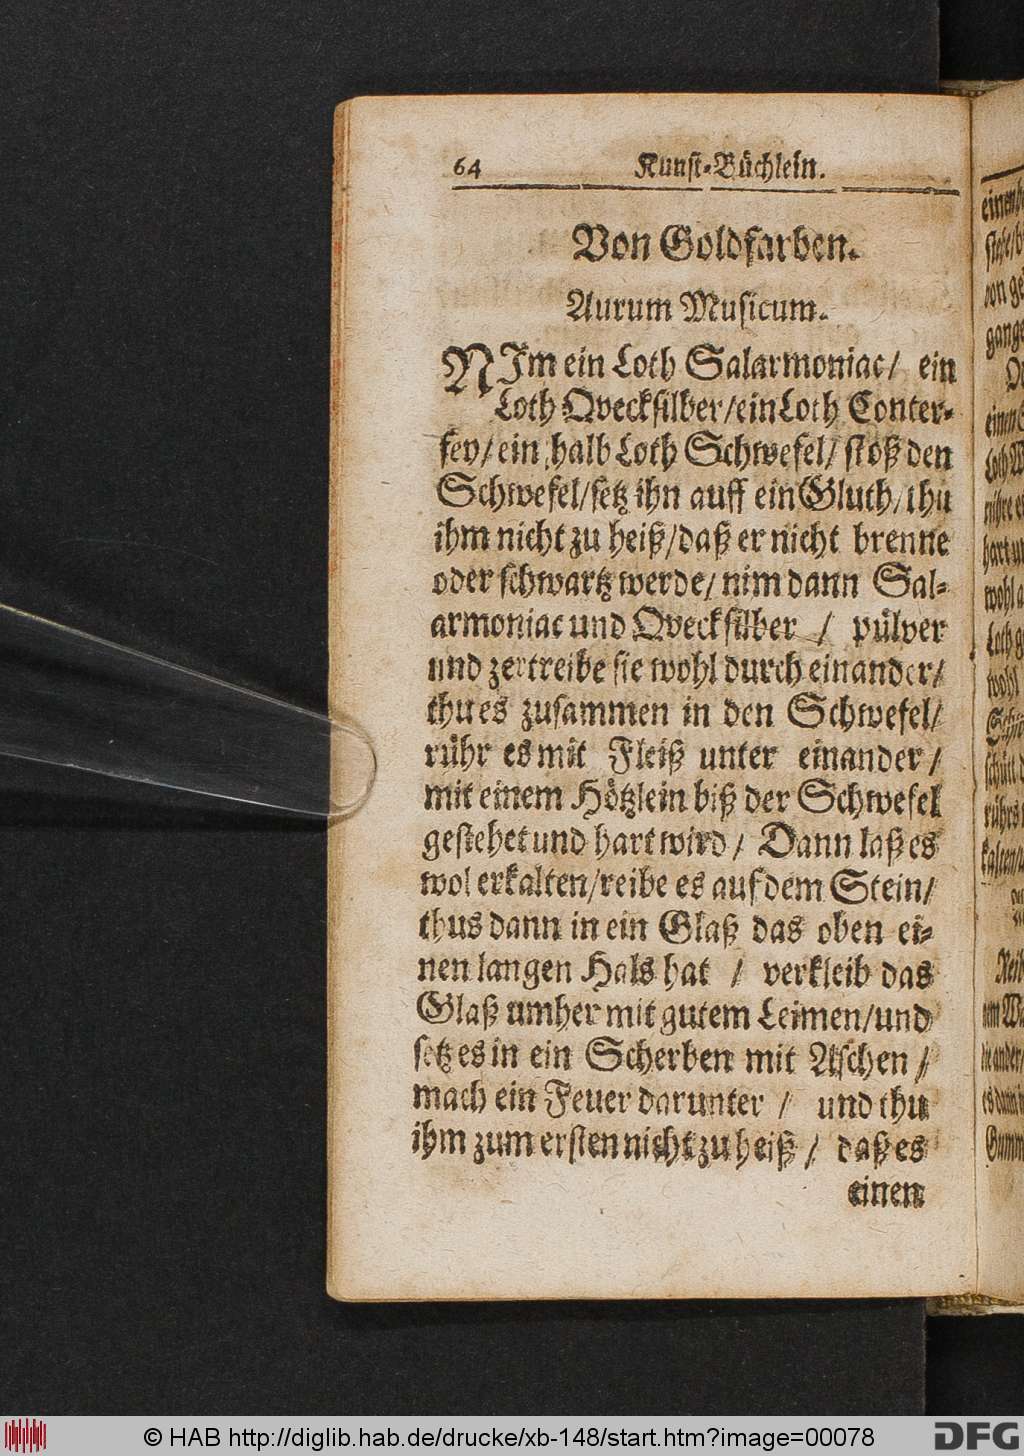 64 Kunst-Büchlein.
Von Goldfarben.
Aurum Musicum.
NIm ein Loth Salarmoniac/ ein
Loth Qvecksilber/ein Loth Conter-
fey/ein halb Loth Schwefel/ stoß den
Schwefel/setz ihn auff ein Gluth/thu
ihm nicht zu heiß/daß er nicht brenne
oder schwartz werde/ nim dann Sal-
armoniac und Qvecksilber / pülver
und zertreibe sie wohl durch einander/
thu es zusammen in den Schwefel/
rühr es mit Fleiß unter einander/
mit einem Hötzlein biß der Schwefel
gestehet und hart wird/ Dann laß es
wol erkalten/reibe es auf dem Stein/
thus dann in ein Glaß das oben ei-
nen langen Hals hat / verkleib das
Glaß umher mit gutem Leimen/und
setz es in ein Scherben mit Aschen/
mach ein Feuer darunter / und thu
ihm zum ersten nicht zu heiß/ daß es
einen
© HAB http://diglib.hab.de/drucke/xb-148/start.htm?image=00078
DFG